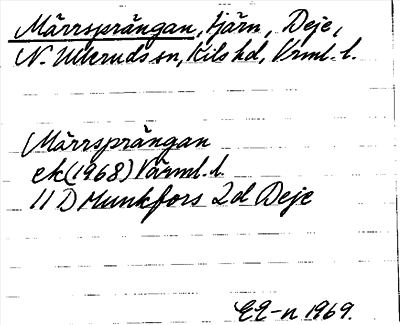 Märrsprängan, tjärn, Deje,
N. Ulleruds sn, Kils hd, Vrml. l.
Märrsprängan
ek (1968) Värml. l.
11 D Munkfors 2d Deje
1969.